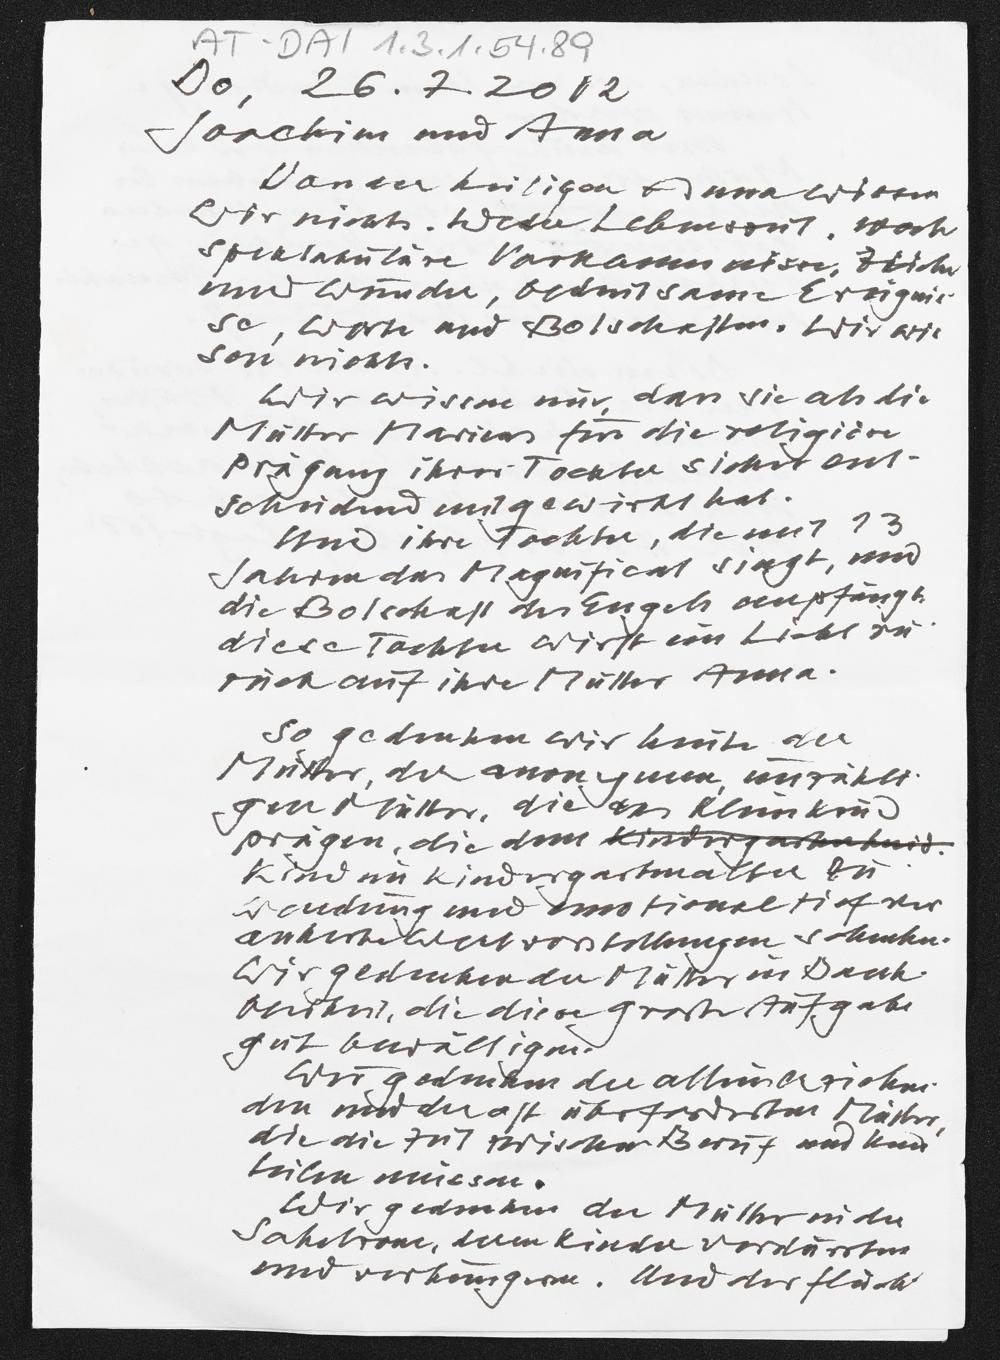 AT-DAI 1.3.1.54.89
Do, 26.7.2012
Joachim und Anna
Von der heiligen Anna wissen
wir nichts. Weder Lebenszeit, noch
spektakuläre Vorkommnisse, Zeichen
und Wunder, bedeutsame Ereignis-
se, Worte und Botschaften. Wir wis-
sen nichts.
Wir wissen nur, dass sie als die
Mutter Mariens für die religiöse
Prägung ihrer Tochter sicher ent-
scheidend mitgewirkt hat.
Und ihre Tochter, die mit 13
Jahren das Magnificat singt, und
die Botschaft des Engels empfängt,
diese Tochter wirft ein Licht zu-
rück auf ihre Mutter Anna.
So gedenken wir heute der
Mütter, der anonymen, unzähli-
gen Mütter, die das Kleinkind
prägen, die dem Kindergartenkind.
Kind im Kindergartenalter Zu
wendung und emotional tief ver
ankerte Wertvorstellungen schenken.
Wir gedenken der Mütter in Dank-
barkeit, die diese grosse Aufgabe
gut bewältigen.
Wir gedenken der alleinerziehen-
den und der oft überforderten Mütter,
die die Zeit zwischen Beruf und Kind
teilen müssen.
Wir gedenken der Mütter in der
Sahelzone, deren Kinder verdursten
und verhungern. Und der Flücht